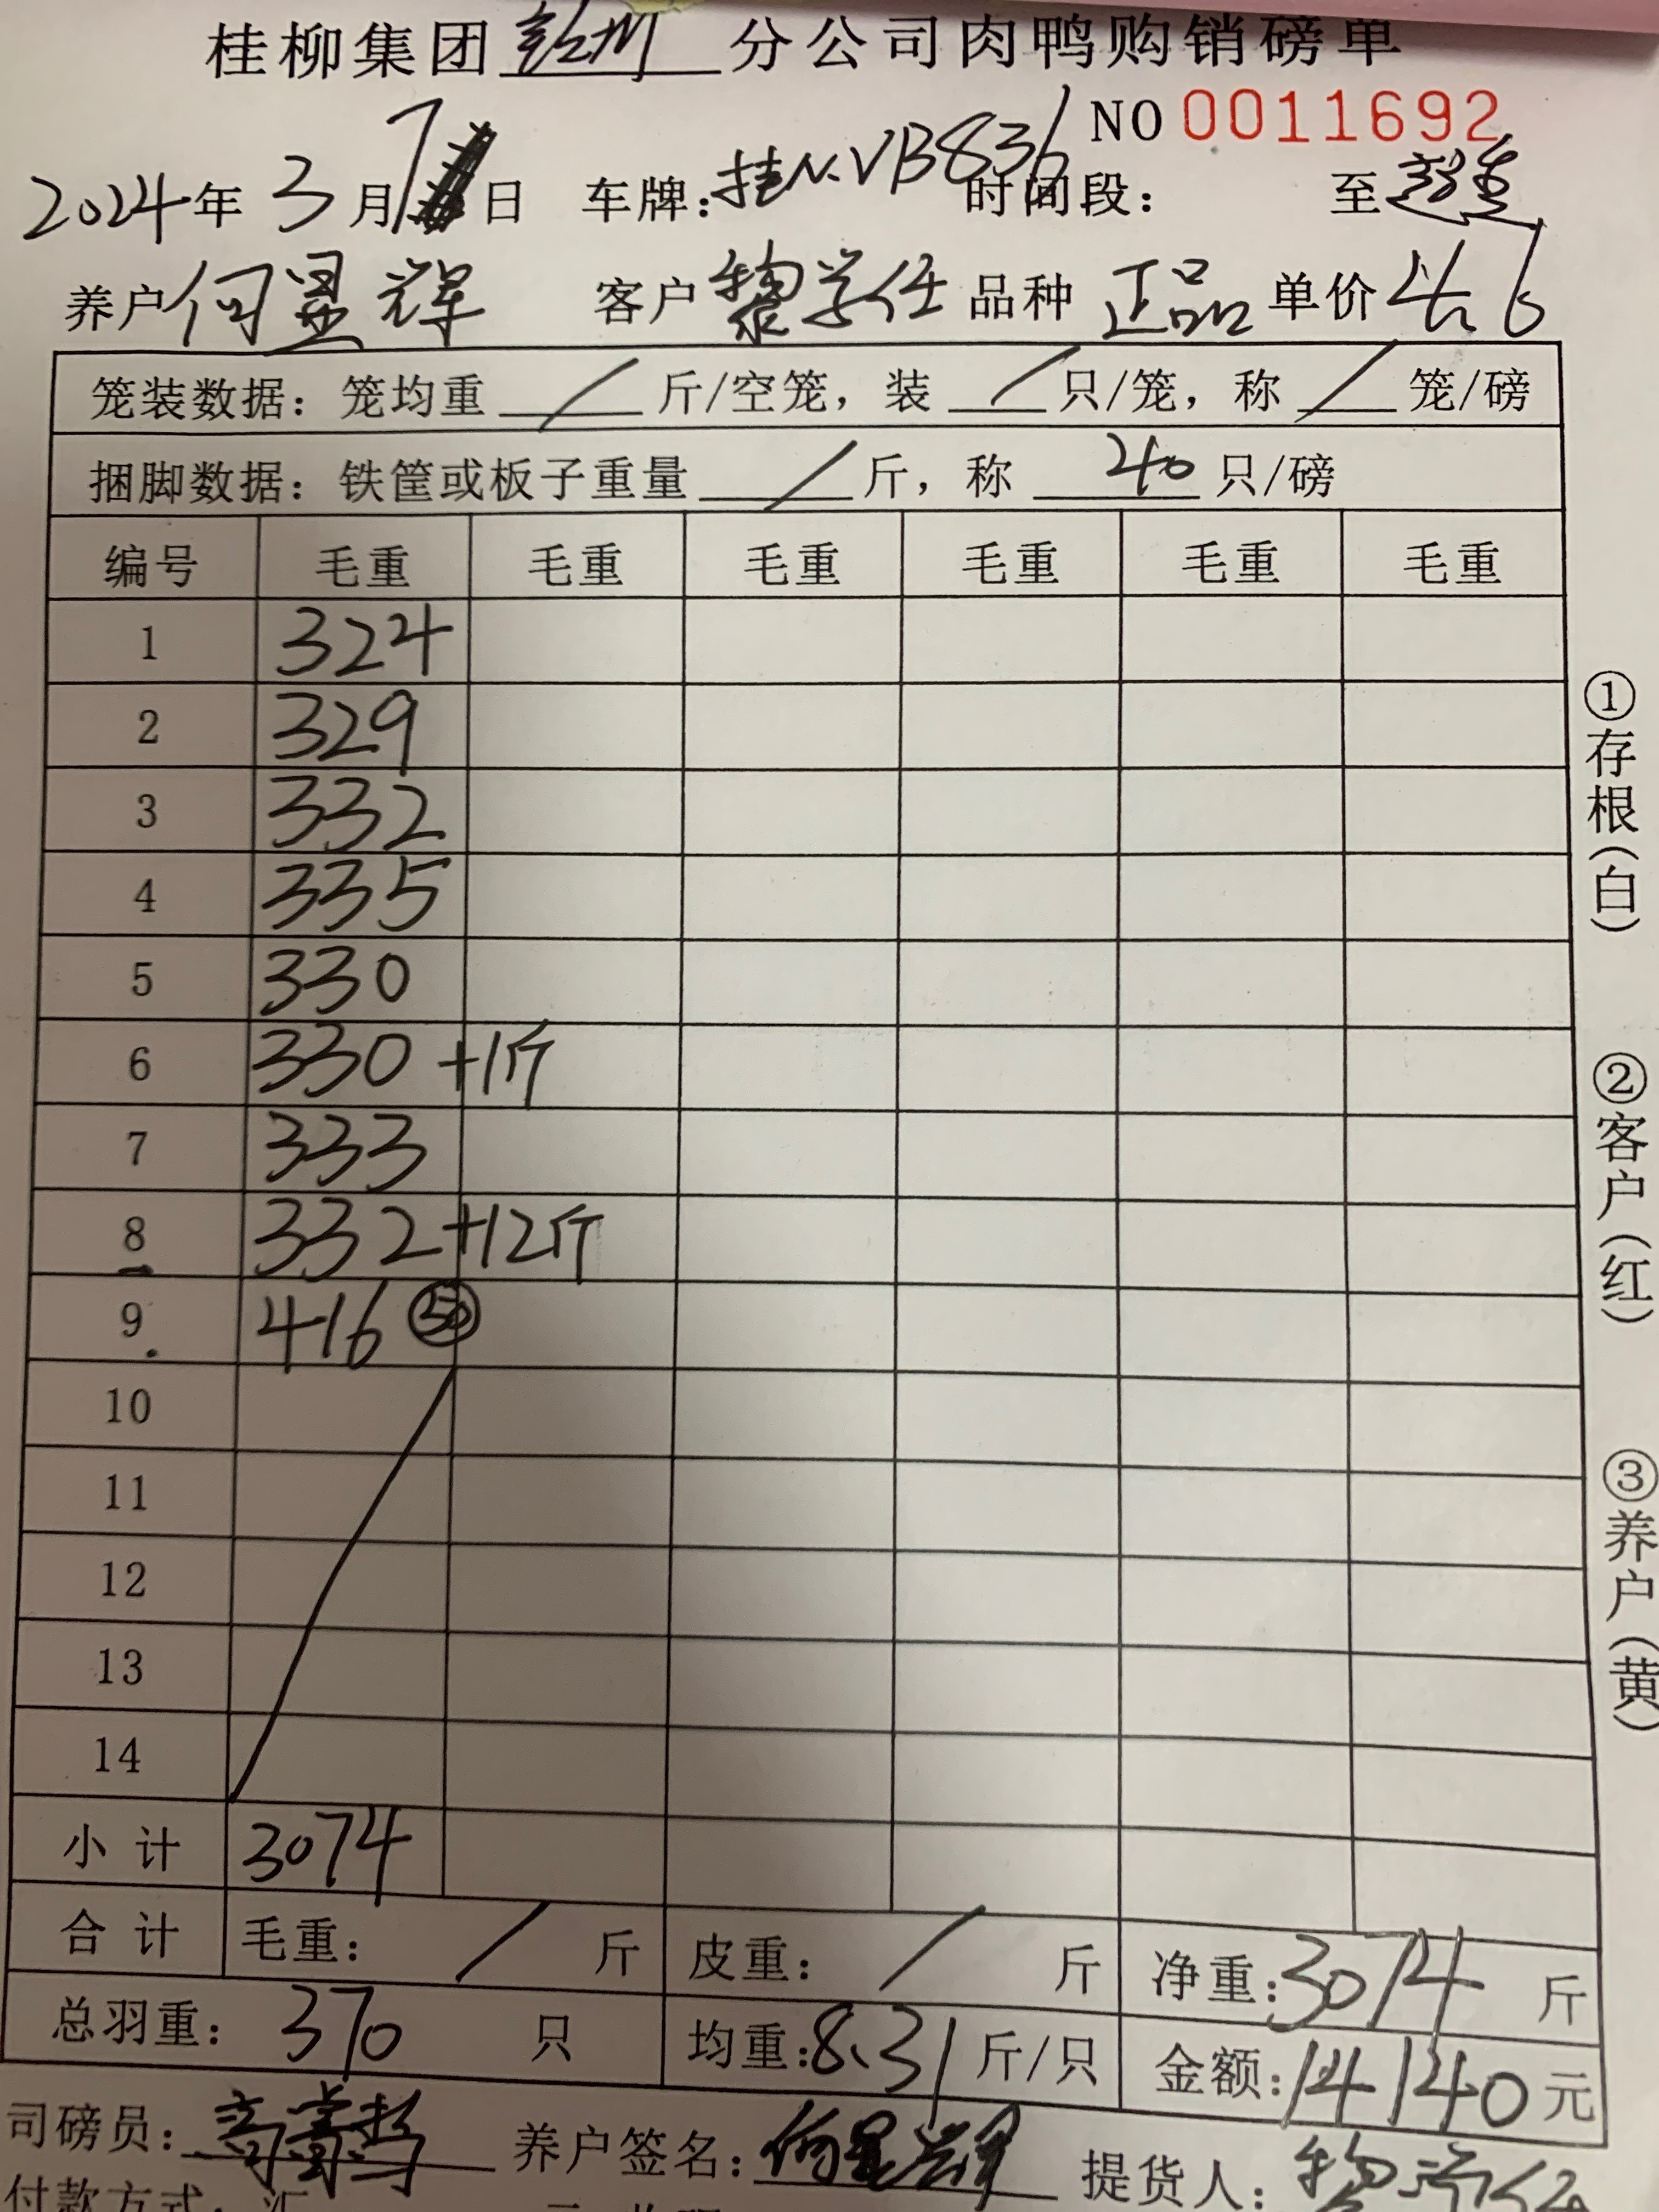 桂柳集团钦州分公司肉鸭购销磅单
NO 0011692
2024年 3月7日 车牌:桂N.VB836 时间段: 至
养户 何显辉 客户 黎学任 品种 正品 单价 4.6
笼装数据: 笼均重 / 斤/空笼, 装 / 只/笼, 称 / 笼/磅
捆脚数据: 铁筐或板子重量 / 斤, 称 40 只/磅
编号 毛重 毛重 毛重 毛重 毛重 毛重
1 324
2 329
3 332
4 335
5 330
6 330 +1斤
7 333
8 332 +12斤
9 416 50
10
11
12
13
14
小计 3074
合计 毛重: / 斤 皮重: / 斤 净重:3074 斤
总羽重: 370 只 均重:8.31斤/只 金额:14140元
司磅员: 养户签名:何显辉 提货人:黎学任
付款方式: 汇
①存根(白)
②客户(红)
③养户(黄)